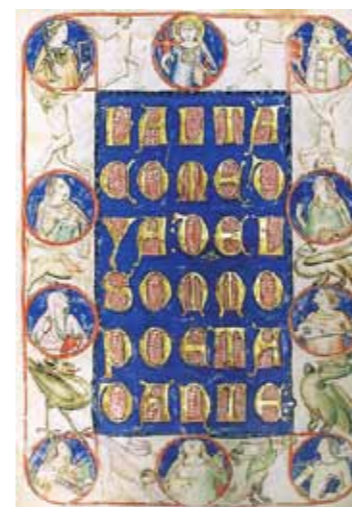 LALTA
COMED
YA DEL
SOMMO
POETA
DANTE